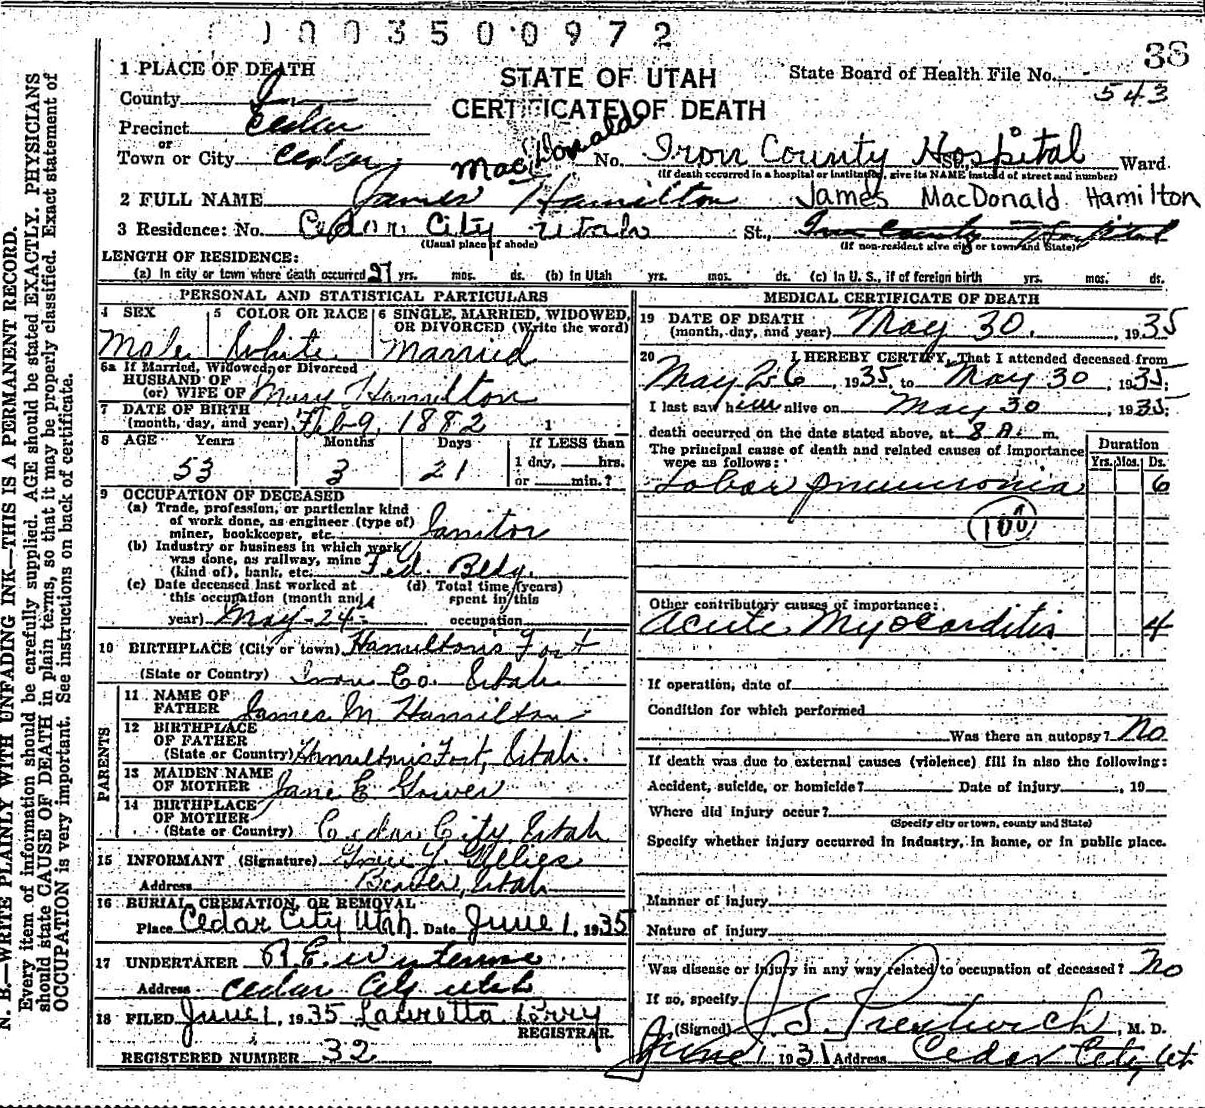 0003500972
38
1 PLACE OF DEATH
STATE OF UTAH
State Board of Health File No. 543
County
CERTIFICATE OF DEATH
Precinct Cedar
or
Town or City Cedar No. Iron County Hospital St., Ward
(If death occurred in a hospital or institution, give its NAME instead of street and number)
MacDonald
2 FULL NAME James Hamilton James MacDonald Hamilton
3 Residence: No. Cedar City Utah St., Iron County Hospital
(Usual place of abode) (If non-resident give city or town and State)
LENGTH OF RESIDENCE:
(a) In city or town where death occurred 27 yrs. mos. ds. (b) in Utah yrs. mos. ds. (c) In U. S., if of foreign birth yrs. mos. ds.
PERSONAL AND STATISTICAL PARTICULARS
4 SEX 5 COLOR OR RACE 6 SINGLE, MARRIED, WIDOWED, OR DIVORCED (Write the word)
Male White Married
6a If Married, Widowed, or Divorced
HUSBAND OF
(or) WIFE OF Mary Hamilton
7 DATE OF BIRTH
(month, day, and year) Feb 9, 1882 1
8 AGE Years Months Days If LESS than
1 day, hrs.
53 3 21 or min.?
9 OCCUPATION OF DECEASED
(a) Trade, profession, or particular kind
of work done, as engineer (type of)
miner, bookkeeper, etc. Janitor
(b) Industry or business in which work
was done, as railway, mine
(kind of), bank, etc. Fed. Bldg.
(c) Date deceased last worked at (d) Total time (years)
this occupation (month and spent in this
year) May-24- occupation
10 BIRTHPLACE (City or town) Hamilton's Fort
(State or Country) Iron Co. Utah
PARENTS
11 NAME OF
FATHER James M Hamilton
12 BIRTHPLACE
OF FATHER
(State or Country) Hamiltons Fort, Utah.
13 MAIDEN NAME
OF MOTHER Jane E Gower
14 BIRTHPLACE
OF MOTHER
(State or Country) Cedar City, Utah
15 INFORMANT (Signature) Gillies
Address Beaver, Utah
16 BURIAL, CREMATION, OR REMOVAL
Place Cedar City Utah. Date June 1, 1935
17 UNDERTAKER
Address Cedar City Utah
18 FILED June 1, 1935 Lauretta Perry
REGISTRAR
REGISTERED NUMBER 32
MEDICAL CERTIFICATE OF DEATH
19 DATE OF DEATH
(month, day, and year) May 30, 1935
20 I HEREBY CERTIFY, That I attended deceased from
May 26, 1935, to May 30, 1935;
I last saw him alive on May 30, 1935;
death occurred on the date stated above, at 8 A. m.
The principal cause of death and related causes of importance
were as follows:
Duration
Yrs. Mos. Ds.
Lobar pneumonia 6
100
Other contributory causes of importance:
Acute Myocarditis 4
If operation, date of
Condition for which performed
Was there an autopsy? No
If death was due to external causes (violence) fill in also the following:
Accident, suicide, or homicide? Date of injury , 19
Where did injury occur?
(Specify city or town, county and State)
Specify whether injury occurred in industry, in home, or in public place.
Manner of injury
Nature of injury
Was disease or injury in any way related to occupation of deceased? No
If so, specify
(Signed) J. S. Prestwich, M. D.
June 1 1935 Address Cedar City Ut
N. B.—WRITE PLAINLY WITH UNFADING INK—THIS IS A PERMANENT RECORD.
Every item of information should be carefully supplied. AGE should be stated EXACTLY. PHYSICIANS
should state CAUSE OF DEATH in plain terms, so that it may be properly classified. Exact statement of
OCCUPATION is very important. See instructions on back of certificate.